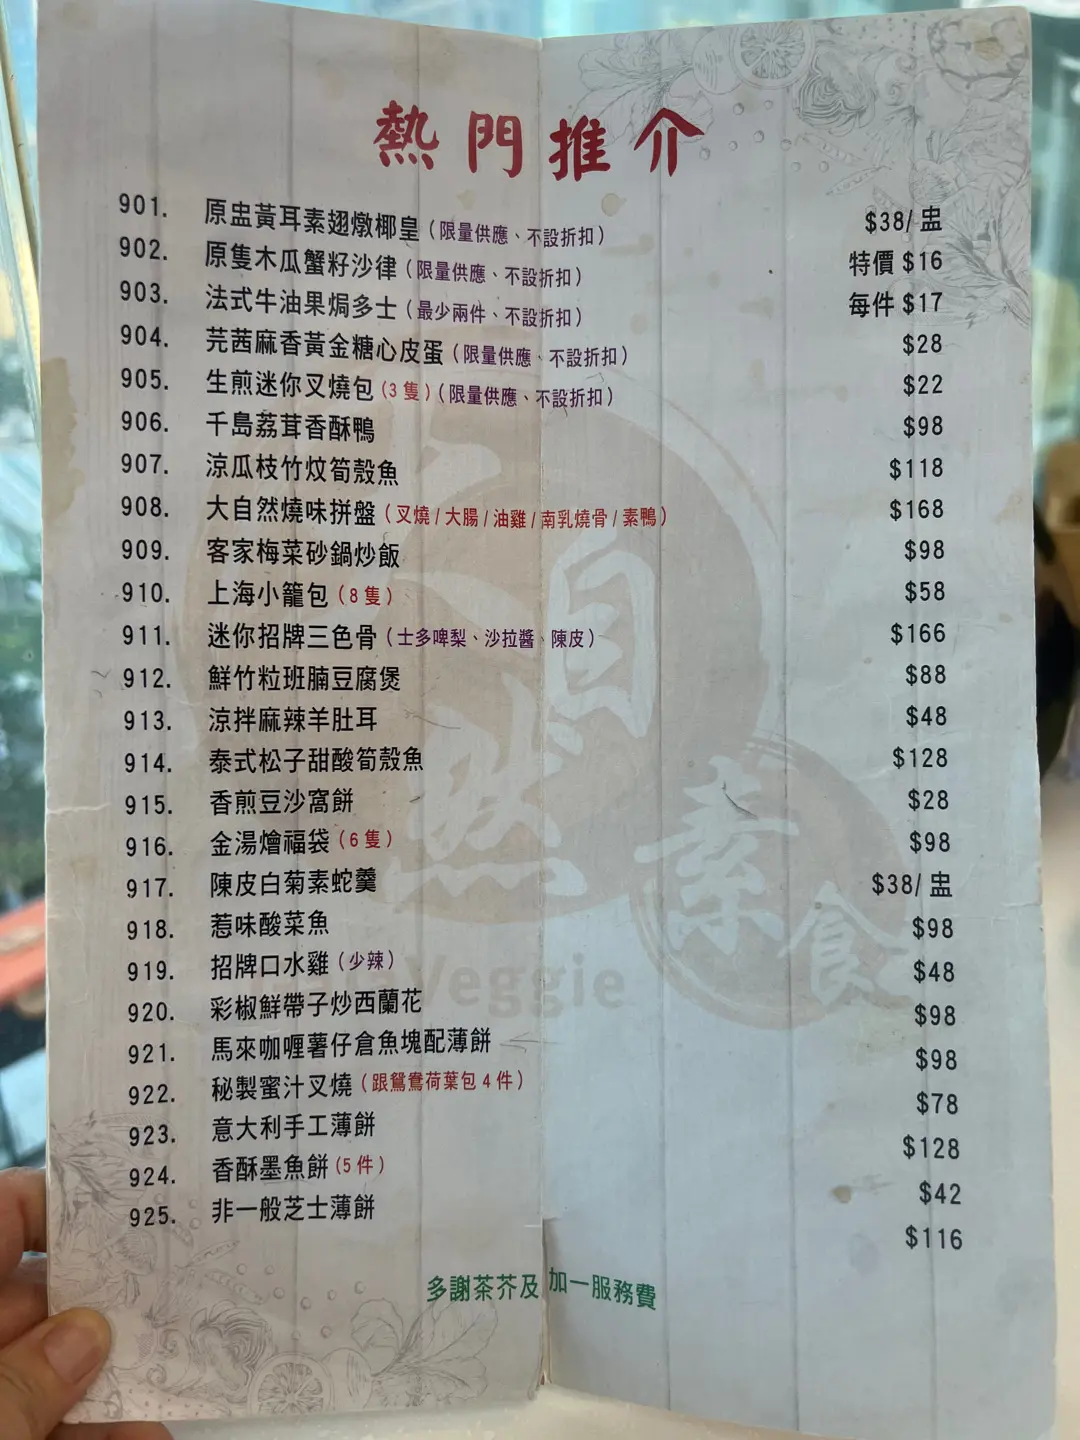 熱門推介
901. 原盅黃耳素翅燉椰皇（限量供應、不設折扣） $38/ 盅
902. 原隻木瓜蟹籽沙律（限量供應、不設折扣） 特價 $16
903. 法式牛油果焗多士（最少兩件、不設折扣） 每件 $17
904. 芫茜麻香黃金糖心皮蛋（限量供應、不設折扣） $28
905. 生煎迷你叉燒包（3 隻）（限量供應、不設折扣） $22
906. 千島荔茸香酥鴨 $98
907. 涼瓜枝竹炆筍殼魚 $118
908. 大自然燒味拼盤（叉燒 / 大腸 / 油雞 / 南乳燒骨 / 素鴨） $168
909. 客家梅菜砂鍋炒飯 $98
910. 上海小籠包（8 隻） $58
911. 迷你招牌三色骨（士多啤梨、沙拉醬、陳皮） $166
912. 鮮竹粒班腩豆腐煲 $88
913. 涼拌麻辣羊肚耳 $48
914. 泰式松子甜酸筍殼魚 $128
915. 香煎豆沙窩餅 $28
916. 金湯燴福袋（6 隻） $98
917. 陳皮白菊素蛇羹 $38/ 盅
918. 惹味酸菜魚 $98
919. 招牌口水雞（少辣） $48
920. 彩椒鮮帶子炒西蘭花 $98
921. 馬來咖喱薯仔倉魚塊配薄餅 $98
922. 秘製蜜汁叉燒（跟鴛鴦荷葉包 4 件） $78
923. 意大利手工薄餅 $128
924. 香酥墨魚餅（5 件） $42
925. 非一般芝士薄餅 $116
自然
素食
Veggie
多謝茶芥及加一服務費